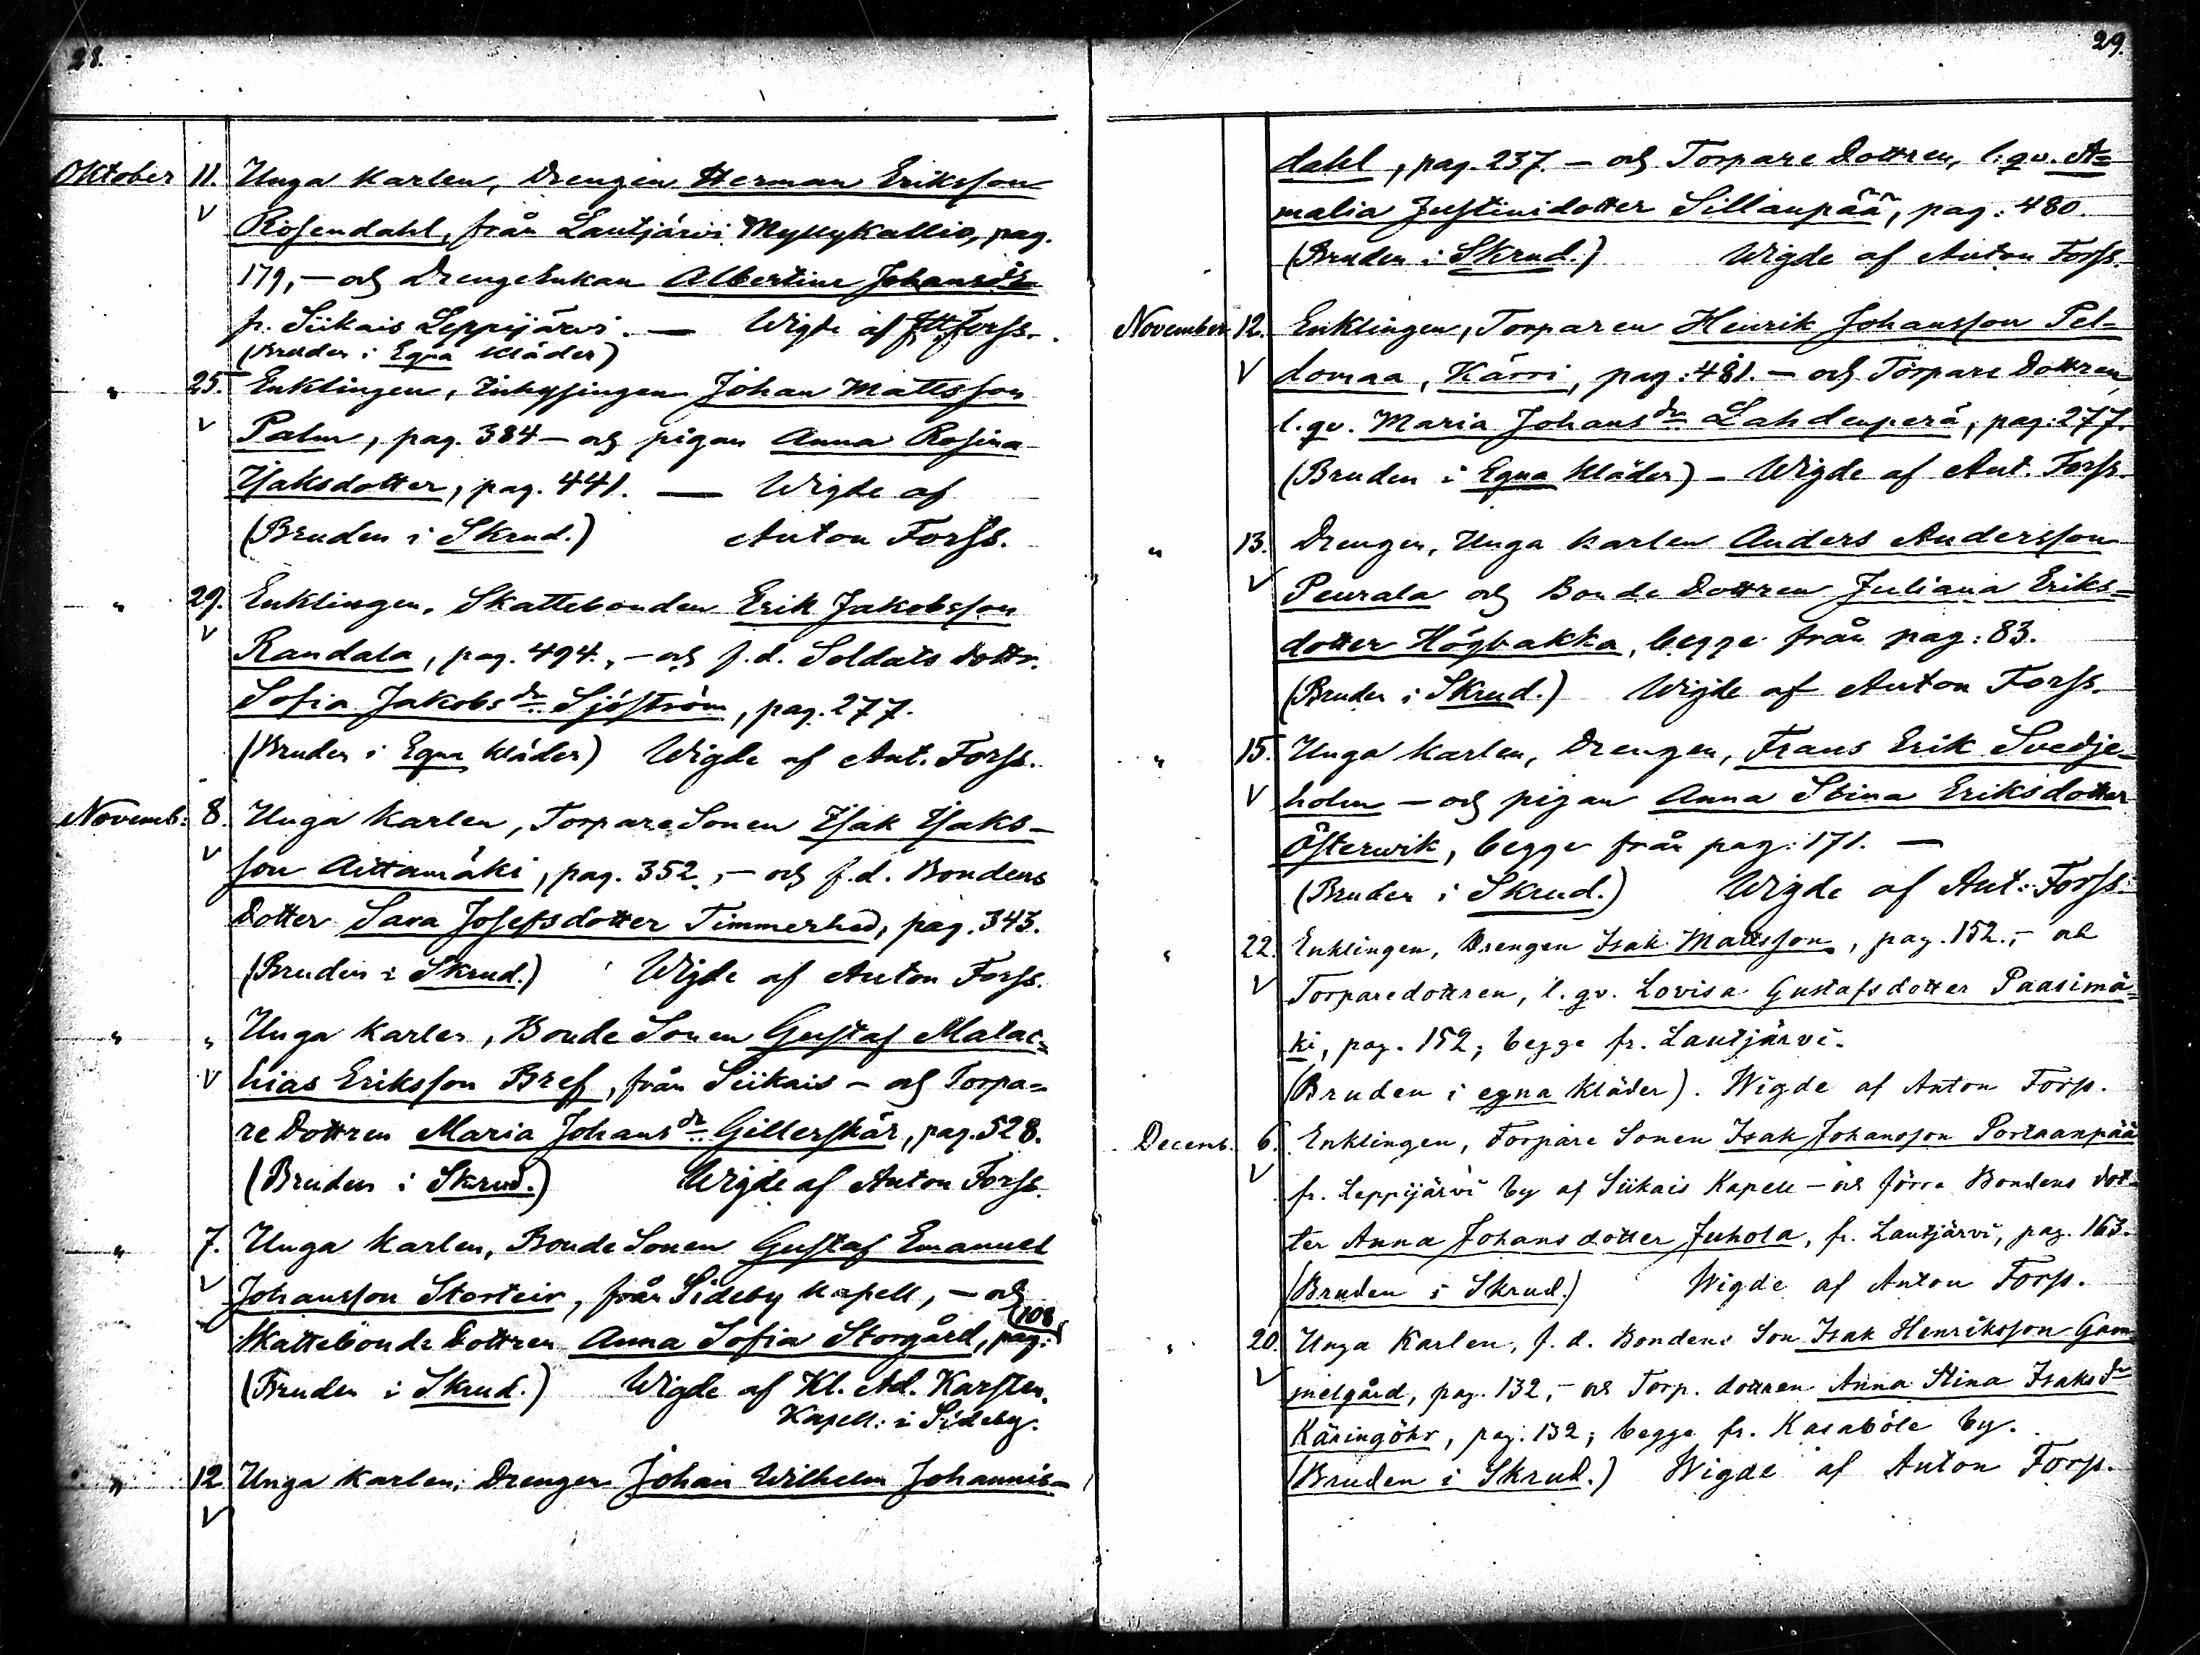 28.
Oktober 11. Unga Karlen, Drengen Herman Eriksson
Rosendahl, från Lautjärvi Myllykallio, pag.
179, – och DrengeEnkan Albertina Johansdr
fr. Siikais Leppijärvi. — Wigde af Forss.
(Bruden i Egna Kläder)
" 25. Enklingen, Inhysingen Johan Mattsson
Palm, pag. 384 – och pigan Anna Rosina
Isaksdotter, pag. 441. — Wigde af
(Bruden i Skrud.) Anton Forss.
" 29. Enklingen, Skattebonden Erik Jakobsson
Randala, pag. 494., – och f.d. Soldats dottr.
Sofia Jakobsdr Sjöström, pag. 277.
(Bruden i Egna Kläder) Wigde af Ant. Forss.
Novemb: 8. Unga Karlen, TorpareSonen Isak Isaks-
son Aittamäki, pag. 352., – och f.d. Bondens
Dotter Sara Josefsdotter Timmerhed, pag. 343.
(Bruden i Skrud.) Wigde af Anton Forss.
" " Unga Karlen, BondeSonen Gustaf Malac=
hias Eriksson Bref, från Siikais – och Torpa=
re Dottren Maria Johansdr Gillerskär, pag. 528.
(Bruden i Skrud.) Wigde af Anton Forss.
" 7. Unga Karlen, BondeSonen Gustaf Emanuel
Johansson Storteir, från Sideby Kapell, – och
Skattebonde Dottren Anna Sofia Storgård, pag: 108
(Bruden i Skrud.) Wigde af Kl. Ad. Karsten.
Kapell: i Sideby.
" 12 Unga Karlen, Drengen Johan Wilhelm Johannis-
29.
dahl, pag. 237. – och Torpare Dottren, l. qv. A=
malia Justinidotter Sillanpää, pag: 480.
(Bruden i Skrud.) Wigde af Anton Forss.
November 12. Enklingen, Torparen Henrik Johansson Pel=
domaa, Kärri, pag: 481. – och Torpare Dottren,
l. qv. Maria Johansdr Lahdenperä, pag: 277.
(Bruden i Egna Kläder) – Wigde af Ant. Forss.
" 13. Drengen, Unga Karlen Anders Andersson
Peurala och Bonde Dottren Juliana Eriks=
dotter Högbakka, begge från pag: 83.
(Bruden i Skrud.) Wigde af Anton Forss.
" 15. Unga Karlen, Drengen, Frans Erik Svedje-
holm – och pigan Anna Stina Eriksdotter
Österwik, begge från pag: 171. —
(Bruden i Skrud.) Wigde af Ant: Forss.
" 22. Enklingen, Drengen Isak Mattsson, pag. 152., – och
Torparedottren, l. qv. Lovisa Gustafsdotter Paasimä=
ki, pag. 152; begge fr. Lautjärvi.
(Bruden i egna Kläder). Wigde af Anton Forss.
Decemb. 6. Enklingen, Torpare Sonen Isak Johansson Portaanpää
fr. Leppijärvi by af Siikais Kapell – och förra Bondens dot=
ter Anna Johansdotter Juhola, fr. Lautjärvi, pag. 163.
(Bruden i Skrud.) Wigde af Anton Forss.
" 20. Unga Karlen, f. d. Bondens Son Isak Henriksson Gam
melgård, pag. 132, – och Torp. dottren Anna Stina Isaksdr
Käringöhr, pag: 132; begge fr. Kasaböle by.
(Bruden i Skrud.) Wigde af Anton Forss.